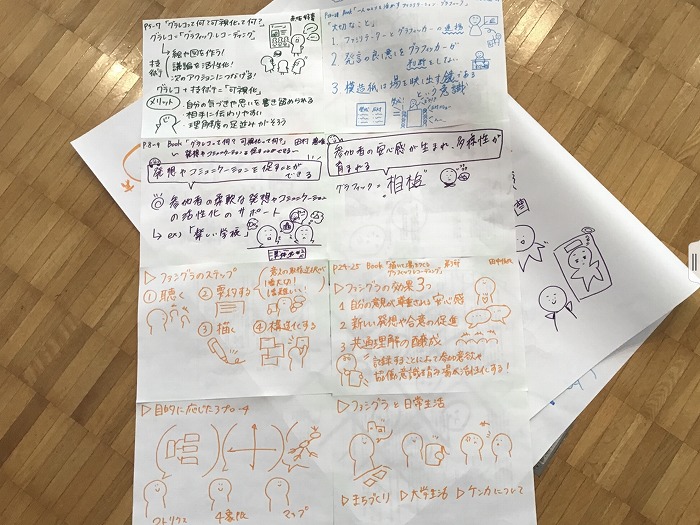 P5-7「グラレコって何？可視化って何？」
グラレコ＝グラフィックレコーディング
↳絵や図を作る！
議論を活性化！
次のアクションにつなげる！
グラレコ 技術で＝「可視化」
メリット
・自分の気づきや思いを書き留められる
・相手に伝わりやすい
・理解度の足並みがそろう
「大切なこと」
1 ファシリテーターとグラフィッカーの連携
2 発言の良し悪しをグラフィッカーが
判断をしない
3 模造紙は場を映し出す鏡である
という意識
P.8-9 Book「グラレコって何？可視化って何？」 田村
発想やコミュニケーションを促すことが
できる
◎参加者の柔軟な発想やコミュニケーション
の活性化のサポート
↳ex)「楽しい学校」
参加者の安心感が生まれ、多様性が
育まれる
グラフィック＝"相槌"
▷ファシグラのステップ
①聴く
②要約する
③描く
④構造化する
P24-25 Book「描いて場をつくる
グラフィックレコーディング」
▷ファシグラの効果3つ
1 自分の意見が尊重される安心感
2 新しい発想や合意の促進
3 共通理解の醸成
記録することによって参加意欲や
協働意識を育み場が活性化する！
▷目的に応じたアプローチ
マトリクス
4象限
マップ
▷ファシグラと日常生活
▷まちづくり ▷大学生活 ▷ケンカについて